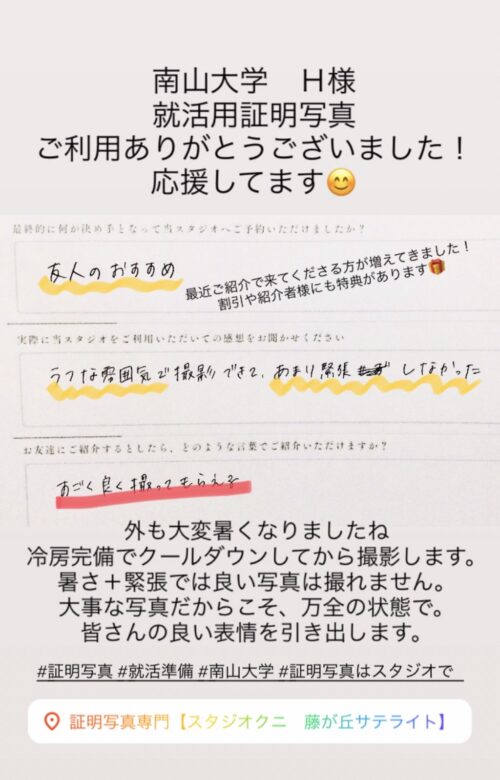 南山大学　H様
就活用証明写真
ご利用ありがとうございました！
応援してます😊
最終的に何が決め手となって当スタジオへご予約いただけましたか？
友人のおすすめ
最近ご紹介で来てくださる方が増えてきました！
割引や紹介者様にも特典があります🎁
実際に当スタジオをご利用いただいての感想をお聞かせください
ラフな雰囲気で撮影できて、あまり緊張 しなかった
お友達にご紹介するとしたら、どのような言葉でご紹介いただけますか？
すごく良く撮ってもらえる
外も大変暑くなりましたね
冷房完備でクールダウンしてから撮影します。
暑さ＋緊張では良い写真は撮れません。
大事な写真だからこそ、万全の状態で。
皆さんの良い表情を引き出します。
#証明写真 #就活準備 #南山大学 #証明写真はスタジオで
証明写真専門【スタジオクニ　藤が丘サテライト】